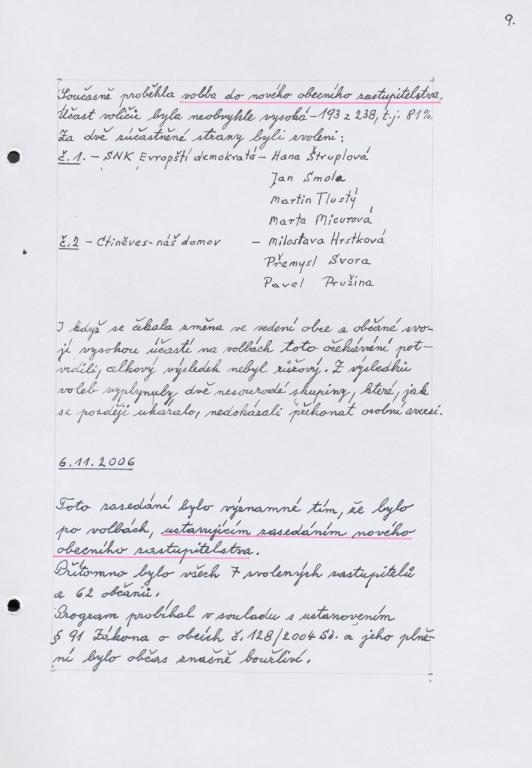 9.
Současně proběhla volba do nového obecního zastupitelstva.
Účast voličů byla neobvykle vysoká - 193 z 238, t.j. 81%.
Za dvě zúčastněné strany byli zvoleni:
č.1. - SNK Evropští demokraté - Hana Štruplová
Jan Smola
Martin Tlustý
Marta Micurová
č.2 - Ctiněves-náš domov - Miloslava Hrstková
Přemysl Svora
Pavel Pružina
I když se čekala změna ve vedení obce a občané svo-
jí vysokou účastí na volbách toto očekávání pot-
vrdili, celkový výsledek nebyl růžový. Z výsledků
voleb vyplynuly dvě nesourodé skupiny, které, jak
se později ukázalo, nedokázali překonat osobní averzi.
6.11.2006
Toto zasedání bylo významné tím, že bylo
po volbách, ustavujícím zasedáním nového
obecního zastupitelstva.
Přítomno bylo všech 7 zvolených zastupitelů
a 62 občanů.
Program probíhal v souladu s ustanovením
§ 91 Zákona o obcích č. 128/2004 Sb. a jeho plně-
ní bylo občas značně bouřlivé.